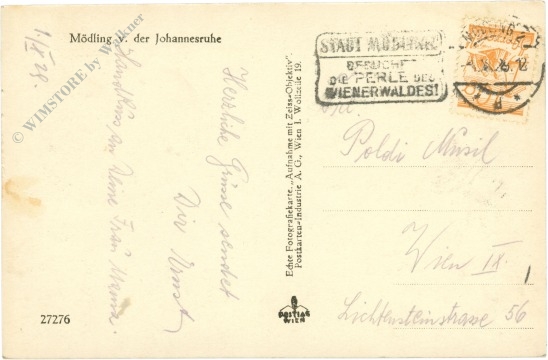 Mödling v. der Johannesruhe
1.IX.28.
Handkuss an Deine Frau Mama.
Herzliche Grüsse sendet
Dir Ernst
© WIMSTORE by W. Walkner
27276
Echte Fotografiekarte. „Aufnahme mit Zeiss-Objektiv“.
Postkarten-Industrie A. G., Wien I. Wollzeile 19.
POSTIAG
WIEN
STADT MÖDLING
BESUCHET
DIE PERLE DES
WIENERWALDES!
Poldi Musil
Wien IX.
Lichtensteinstrasse 56